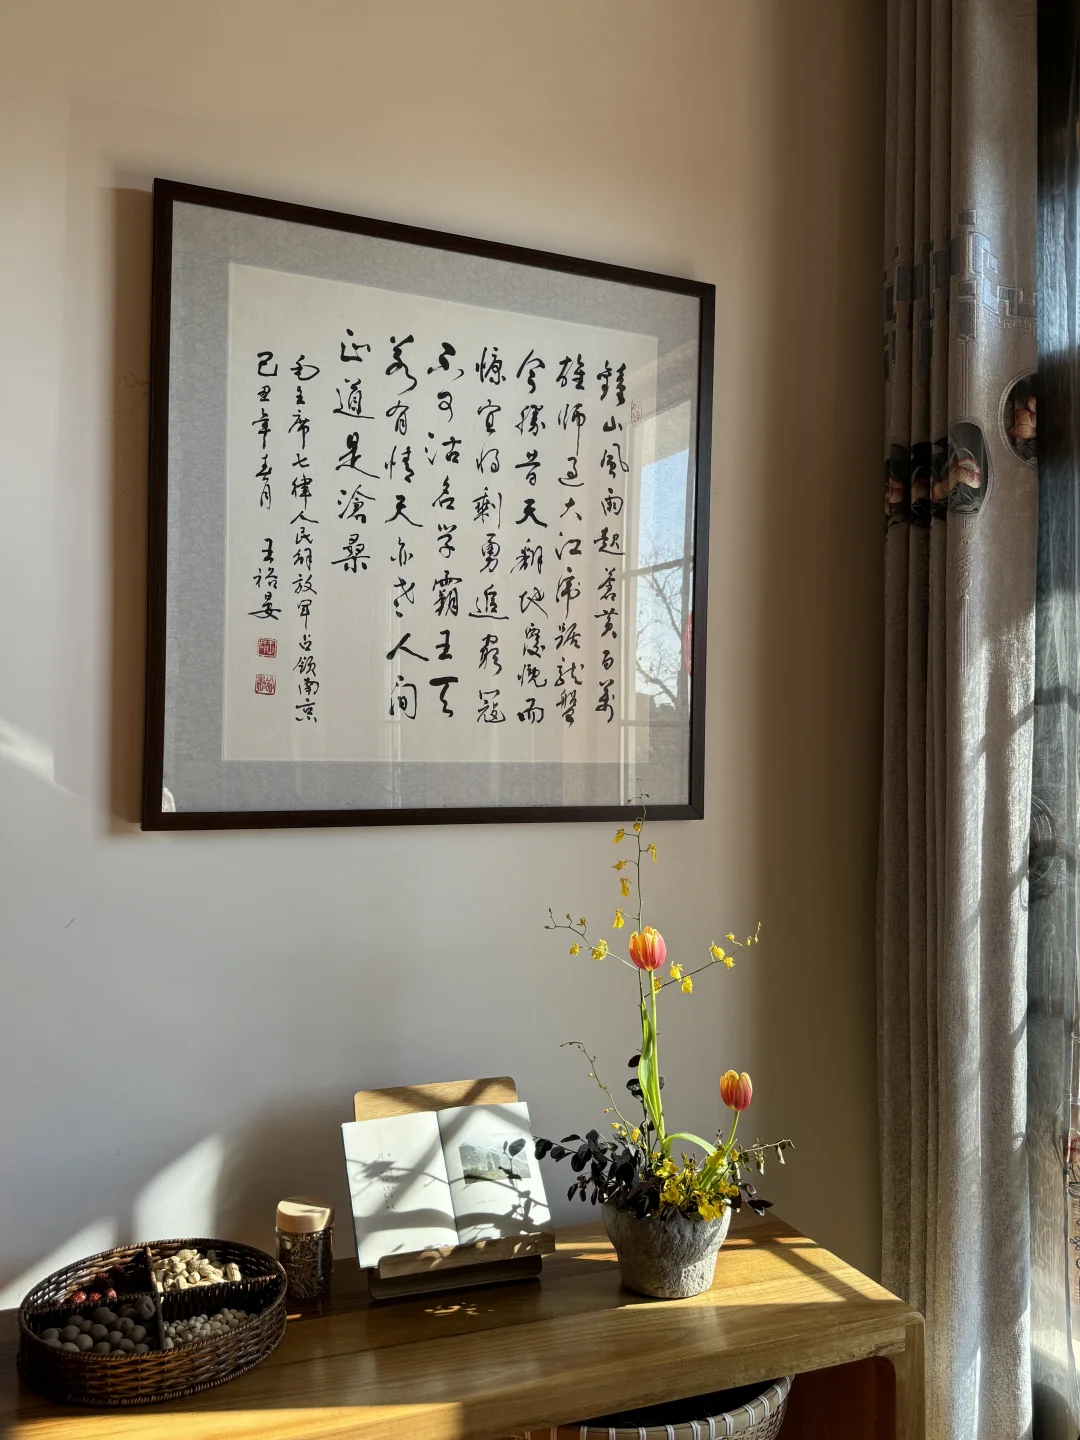 鍾山風雨起蒼黄百萬
雄师过大江虎踞龙盤
今勝昔天翻地覆慨而
慷宜将剩勇追窮寇
不可沽名学霸王天
若有情天亦老人间
正道是滄桑
毛主席七律人民解放军占领南京
己丑年春月 王裕晏